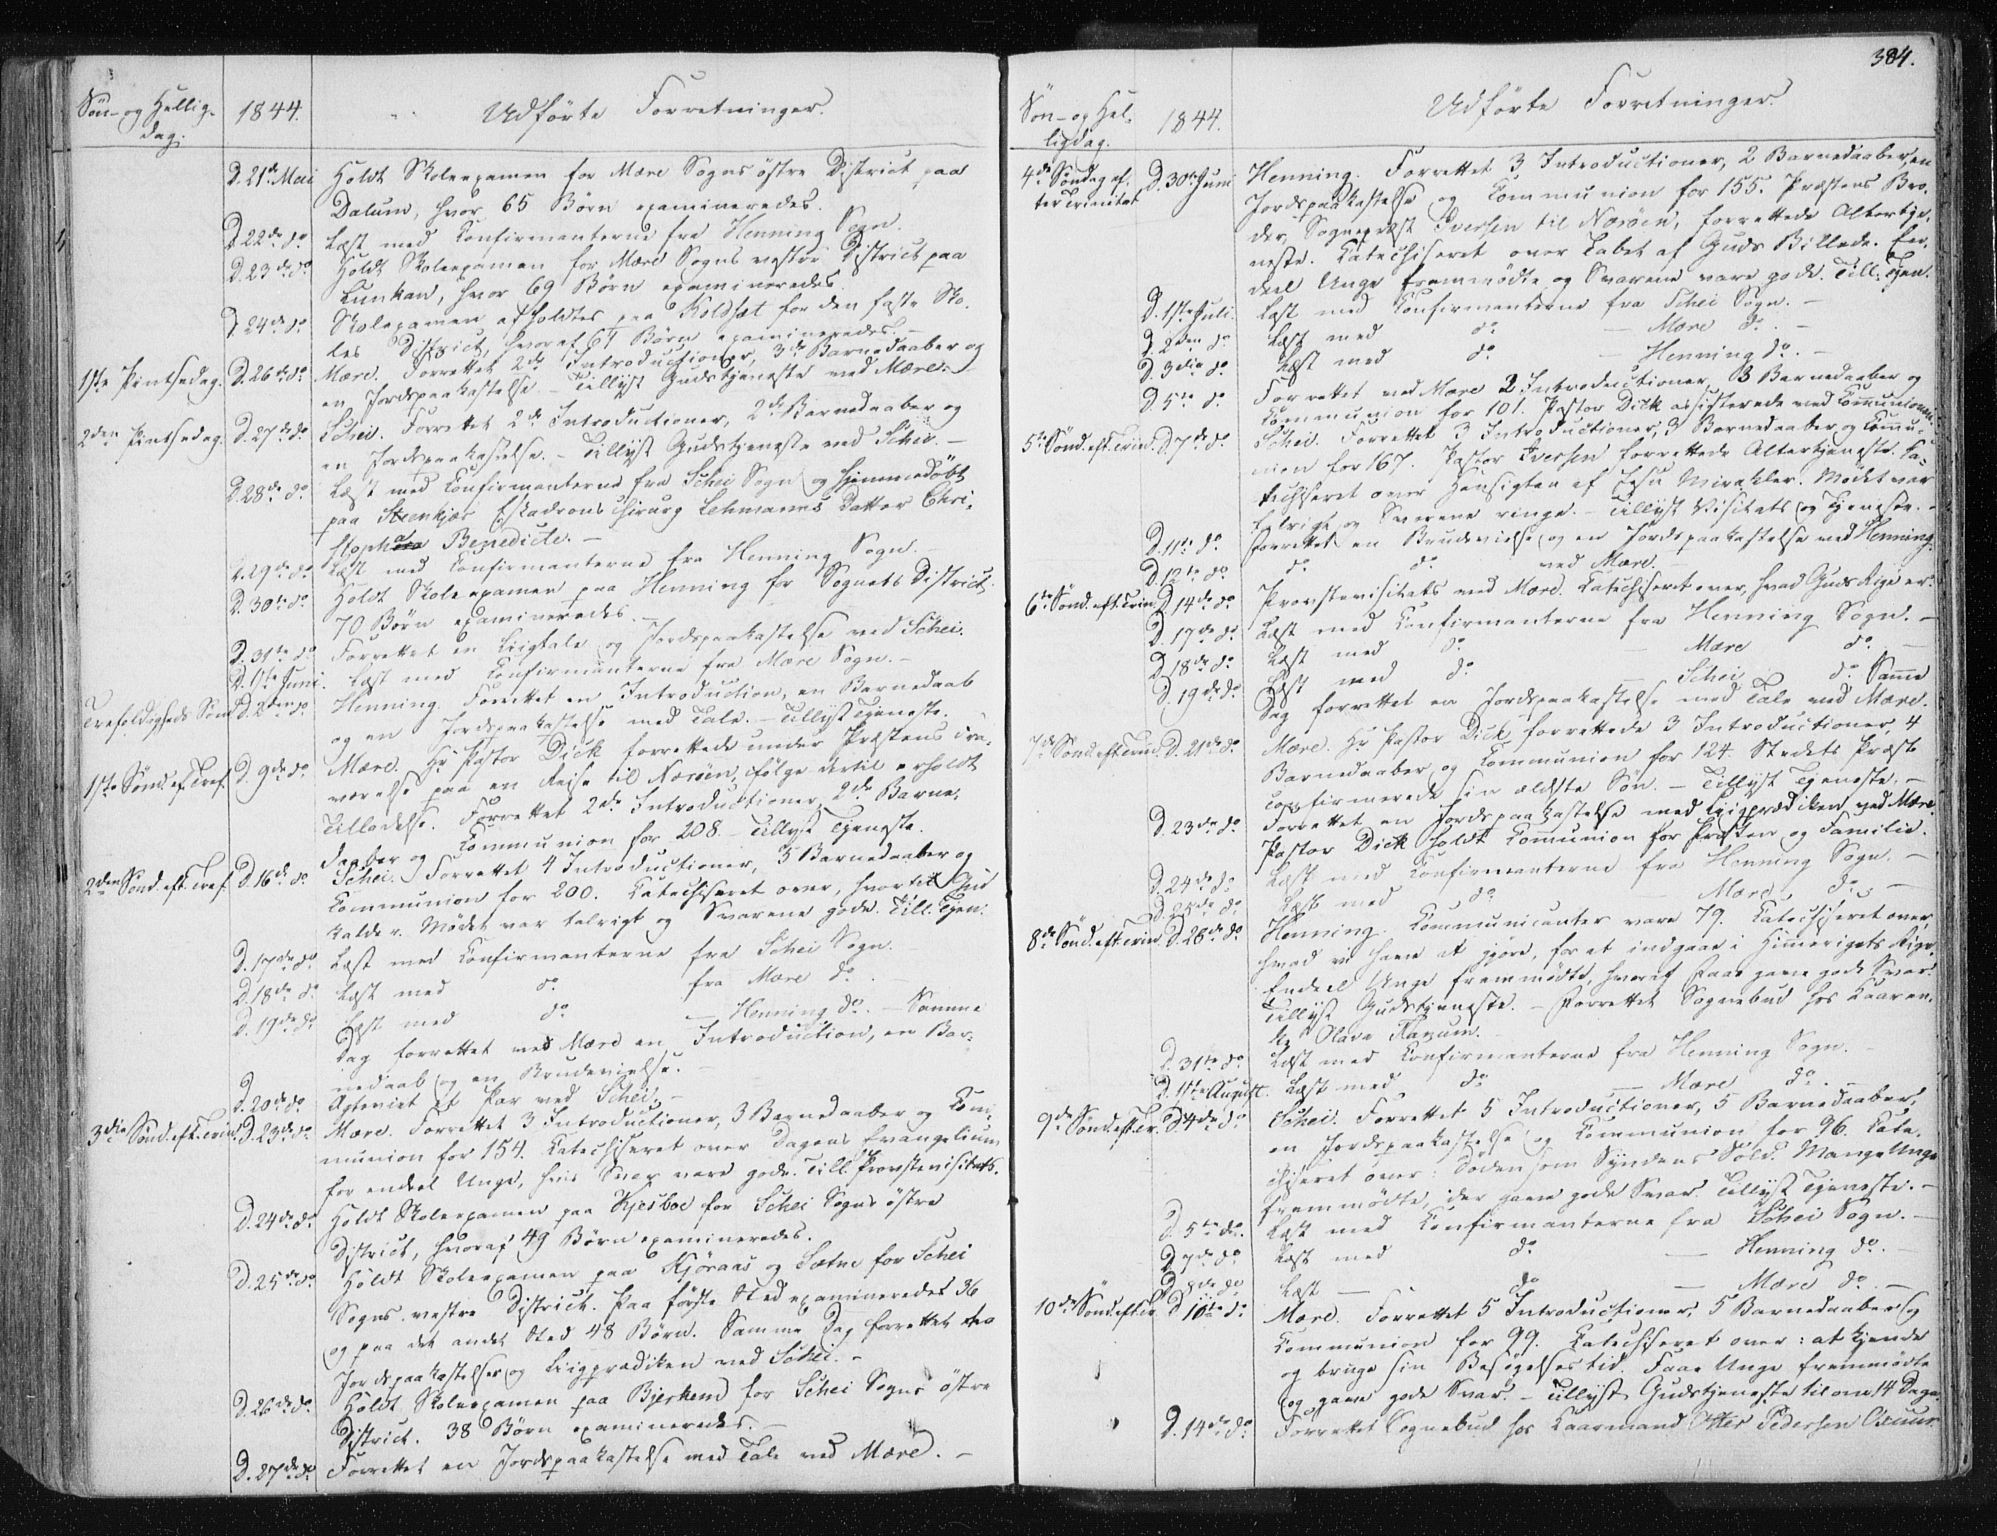 384.
Søn- og Hellig-
dag.
1844.
Udførte Forretninger.
D. 21de Mai Holdt Skoleexamen for Mære Sogns østre District paa
Dalum, hvor 65 Børn examineredes.
D. 22de do Læst med Confirmanterne fra Henning Sogn.
D. 23de do Holdt Skoleexamen for Mære Sogns vestre District paa
Lunkan, hvor 69 Børn examineredes.
D. 24de do Skoleexamen afholdtes paa Koldset for den faste Sko-
les District, hvoraf 61 Børn examineredes. –
1ste Pintsedag. D. 26de do Mære. Forrettet 2de Introductioner, 3de Barnedaaber og
en Jordspaakastelse. – Tillyst Gudstjeneste ved Mære. –
2den Pintsedag. D. 27de do Schei. Forrettet 2de Introductioner, 2de Barnedaaber og
en Jordspaakastelse. – Tillyst Gudstjeneste ved Schei. –
D. 28de do Læst med Confirmanterne fra Schei Sogn og hjemmedøbt
paa Steenkjær Eskadrons Chirurg Lehmanns Datter Chri-
stopha Benedicte. –
D. 29de do Læst med Confirmanterne fra Henning Sogn.
D. 30te do Holdt Skoleexamen paa Henning for Sognets District.
70 Børn examineredes.
D. 31te do Forrettet en Liigtale og Jordspaakastelse ved Schei.
D. 1ste Juni. Læst med Confirmanterne fra Mære Sogn. –
Trefoldigheds Sønd. D. 2den do Henning. Forrettet en Introduction, en Barnedaab
og en Jordspaakastelse med Tale. – Tillyst Tjeneste.
1ste Sønd. ef. Tref. D. 9de do Mære. Hr Pastor Dick forrettede under Præstens Fra-
værelse paa en Reise til Nærøen, ifølge dertil erholdt
Tilladelse. Forrettet 2de Introductioner, 2de Barne-
daaber og Communion for 208. – Tillyst Tjeneste.
2den Sønd. eft. Tref. D. 16de do Schei. Forrettet 4 Introductioner, 5 Barnedaaber og
Communion for 200. Catechiseret over, hvortil Gud
kalder. Mødet var talrigt og Svarene gode. Till. Tjen.
D. 17de do Læst med Confirmanterne fra Schei Sogn. –
D. 18de do Læst med do fra Mære do. –
D. 19de do Læst med do – Henning do. – Samme
Dag forrettet ved Mære en Introduction, en Bar-
nedaab og en Brudevielse. –
D. 20de do Ægteviet et Par ved Schei. –
3die Sønd. eft. Trin. D. 23de do Mære. Forrettet 3 Introductioner, 3 Barnedaaber og Com-
munion for 154. Catechiseret over Dagens Evangelium
for endeel Unge, hvis Svar vare gode. Till. Provstevisitats.
D. 24de do Holdt Skoleexamen paa Kjesboe for Schei Sogns østre
District, hvoraf 49 Børn examineredes.
D. 25de do Holdt Skoleexamen paa Kjøraas og Sætne for Schei
Sogns vestre District. Paa første Sted examineredes 36
og paa det andet Sted 48 Børn. Samme Dag forrettet to
Jordspaakastelser og Liigprædiken ved Schei. –
D. 26de do Holdt Skoleexamen paa Bjerkem for Schei Sogns østre
District. 38 Børn examineredes. –
D. 27de do Forrettet en Jordspaakastelse med Tale ved Mære. –
Søn- og Hel-
ligdag.
1844.
Udførte Forretninger.
4de Søndag ef-
ter Trinitat D. 30te Juni Henning. Forrettet 3 Introductioner, 2 Barnedaaber, en
Jordspaakastelse og Communion for 155. Præstens Bro-
der, Sognepræst Iversen til Nærøen, forrettede Altertje-
neste. Catechiseret over Tabet af Guds Billede. En-
deel Unge fremmødte og Svarene vare gode. Till. Tjen.
D. 1ste Juli. Læst med Confirmanterne fra Schei Sogn. –
D. 2den do Læst med do – Mære do. –
D. 3die do Læst med do – Henning do. –
D. 5te do Forrettet ved Mære 2 Introductioner, 3 Barnedaaber og
Communion for 101. Pastor Dick assisterede ved Communionen.
5te Sønd. eft. Trin. D. 7de do Schei. Forrettet 3 Introductioner, 3 Barnedaaber og Commu-
nion for 167. Pastor Iversen forrettede Altertjeneste. Ca-
techiseret over Hensigten af Jesu Mirakler. Mødet var
talrigt og Svarene ringe. – Tillyst Visitats og Tjeneste. –
D. 11te do Forrettet en Brudevielse og en Jordspaakastelse ved Henning.
D. 12te do do do ved Mære. –
6te Sønd. eft. Trin. D. 14de do Provstevisitats ved Mære. Catechiseret over, hvad Guds Rige er.
D. 17de do Læst med Confirmanterne fra Henning Sogn. –
D. 18de do Læst med do – Mære do. –
D. 19de do Læst med do – Schei do. Samme
Dag forrettet en Jordspaakastelse med Tale ved Mære.
7de Sønd. eft. Trin. D. 21de do Mære. Hr Pastor Dick forrettede 3 Introductioner, 4
Barnedaaber og Communion for 124. Stedets Præst
confirmerede sin ældste Søn. – Tillyst Tjeneste. –
D. 23de do Forrettet en Jordspaakastelse med Liigprædiken ved Mære.
Pastor Dick holdt Communion for Præsten og Familie.
D. 24de do Læst med Confirmanterne fra Henning Sogn. –
D. 25de do Læst med do Mære do. –
8de Sønd. eft. Trin. D. 28de do Henning. Communicanter vare 79. Catechiseret over,
hvad vi have at gjøre, for at indgaae i Himmerigets Rige.
Endeel Unge fremmødte, hvoraf Faae gave gode Svar.
Tillyst Gudstjeneste. – Forrettet Sognebud hos Kaaren-
de Olava Ranum. –
D. 31te do Læst med Confirmanterne fra Henning Sogn. –
D. 1ste August. Læst med do – Mære do. –
9de Sønd. eft. Tr. D. 4de do Schei. Forrettet 5 Introductioner, 5 Barnedaaber,
en Jordspaakastelse og Communion for 96. Cate-
chiseret over: Døden som Syndens Sold. Mange Unge
fremmødte, der gave gode Svar. Tillyst Tjeneste. –
D. 5te do Læst med Confirmanterne fra Schei Sogn. –
D. 7de do Læst med do – Henning do. –
D. 8de do Læst – do – Mære do. –
10de Sønd. eft. Tr. D. 11te do Mære. Forrettet 5 Introductioner, 5 Barnedaaber og
Communion for 99. Catechiseret over: at kjende
og bruge sin Besøgelsestid. Faae Unge fremmødte
og gave gode Svar. – Tillyst Gudstjeneste til om 14 Dage.
D. 14de do Forrettet Sognebud hos Kaarmand Peder Pedersen